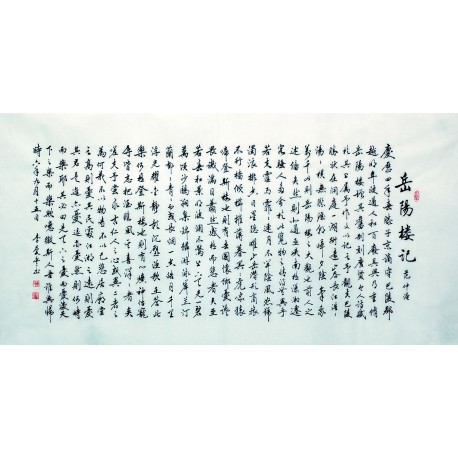 岳陽樓記 范仲淹
慶歷四年春滕子京謫守巴陵郡
越明年政通人和百廢具興乃重脩
岳陽樓增其舊制刻唐賢今人詩賦
於其上屬予作文以記之予觀夫巴陵
勝狀在洞庭一湖銜遠山吞長江浩浩
湯湯橫無際涯朝暉夕陰氣象
萬千此則岳陽樓之大觀也前人之
述備矣然則北通巫峽南極瀟湘遷
客騷人多會於此覽物之情得無異乎
若夫霪雨霏霏連月不開陰風怒號
濁浪排空日星隱耀山岳潛形商旅
不行檣傾楫摧薄暮冥冥虎嘯猿
啼登斯樓也則有去國懷鄉憂讒
畏譏滿目蕭然感極而悲者矣至
若春和景明波瀾不驚上下天光一碧
萬頃沙鷗翔集錦鱗游泳岸芷汀
蘭郁郁青青而或長煙一空皓月千里
浮光躍金靜影沉璧漁歌互答此
樂何極登斯樓也則有心曠神怡寵
辱皆忘把酒臨風其喜洋洋者矣
嗟夫予嘗求古仁人之心或異二者之
為何哉不以物喜不以己悲居廟堂
之高則憂其民處江湖之遠則憂
其君是進亦憂退亦憂然則何時
而樂耶其必曰先天下之憂而憂後天
下之樂而樂歟噫微斯人吾誰與歸
時六年九月十五日